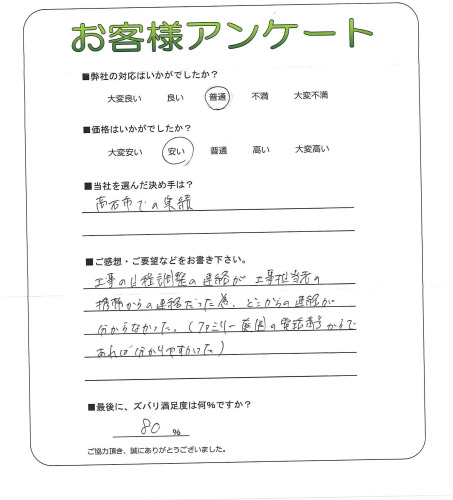 お客様アンケート
■弊社の対応はいかがでしたか？
大変良い 良い 普通 不満 大変不満
■価格はいかがでしたか？
大変安い 安い 普通 高い 大変高い
■当社を選んだ決め手は？
高石市での実績
■ご感想・ご要望などをお書き下さい。
工事の日程調整の連絡が工事担当者の
携帯からの連絡だった為、どこからの連絡か
分からなかった。(ファミリー庭園の電話番号からで
あれば分かりやすかった)
■最後に、ズバリ満足度は何%ですか？
80 %
ご協力頂き、誠にありがとうございました。